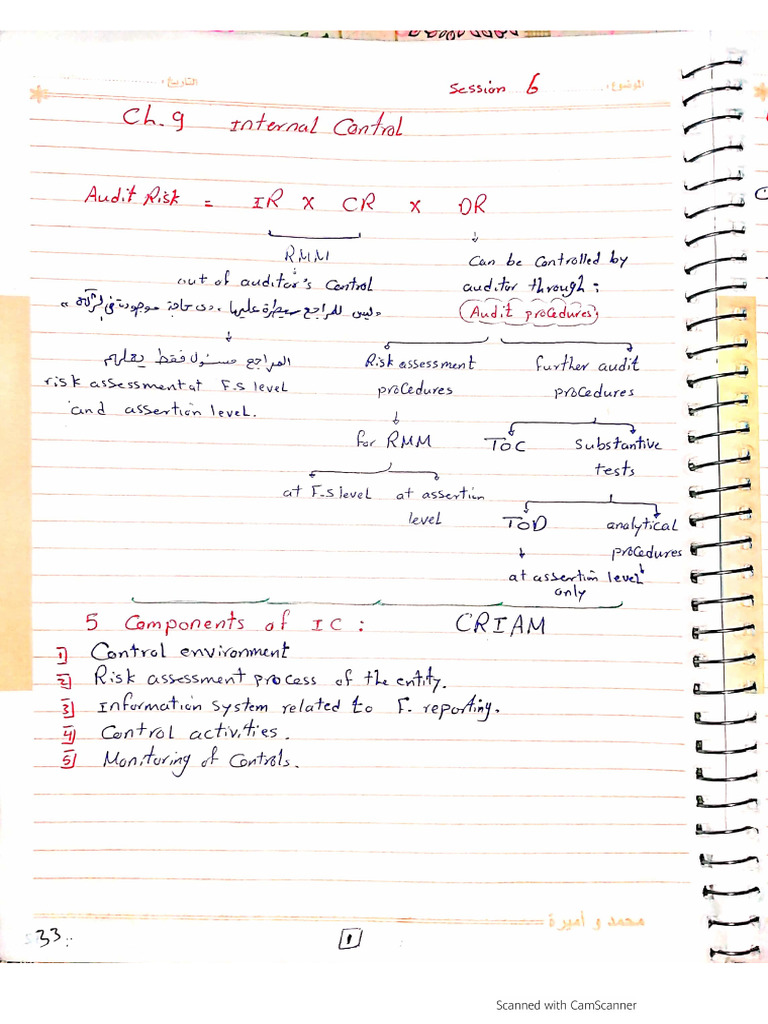 التاريخ:
الموضوع:
Session 6
Ch.9 Internal Control
Audit Risk = IR X CR X DR
RMM
out of auditor's Control
"ليس للمراجع سيطرة عليها، دى حاجة موجودة فى الشركة"
المراجع مسئول فقط يعملهم
risk assessment at F.S level
and assertion level.
Can be Controlled by
auditor through:
(Audit procedures)
Risk assessment
procedures
for RMM
at F.S level at assertion
level
further audit
procedures
TOC Substantive
tests
TOD analytical
procedures
at assertion level
only
5 Components of IC: CRIAM
1 Control environment
2 Risk assessment process of the entity.
3 Information System related to F. reporting.
4 Control activities.
5 Monitoring of Controls.
محمد و أميرة
33
1
Scanned with CamScanner